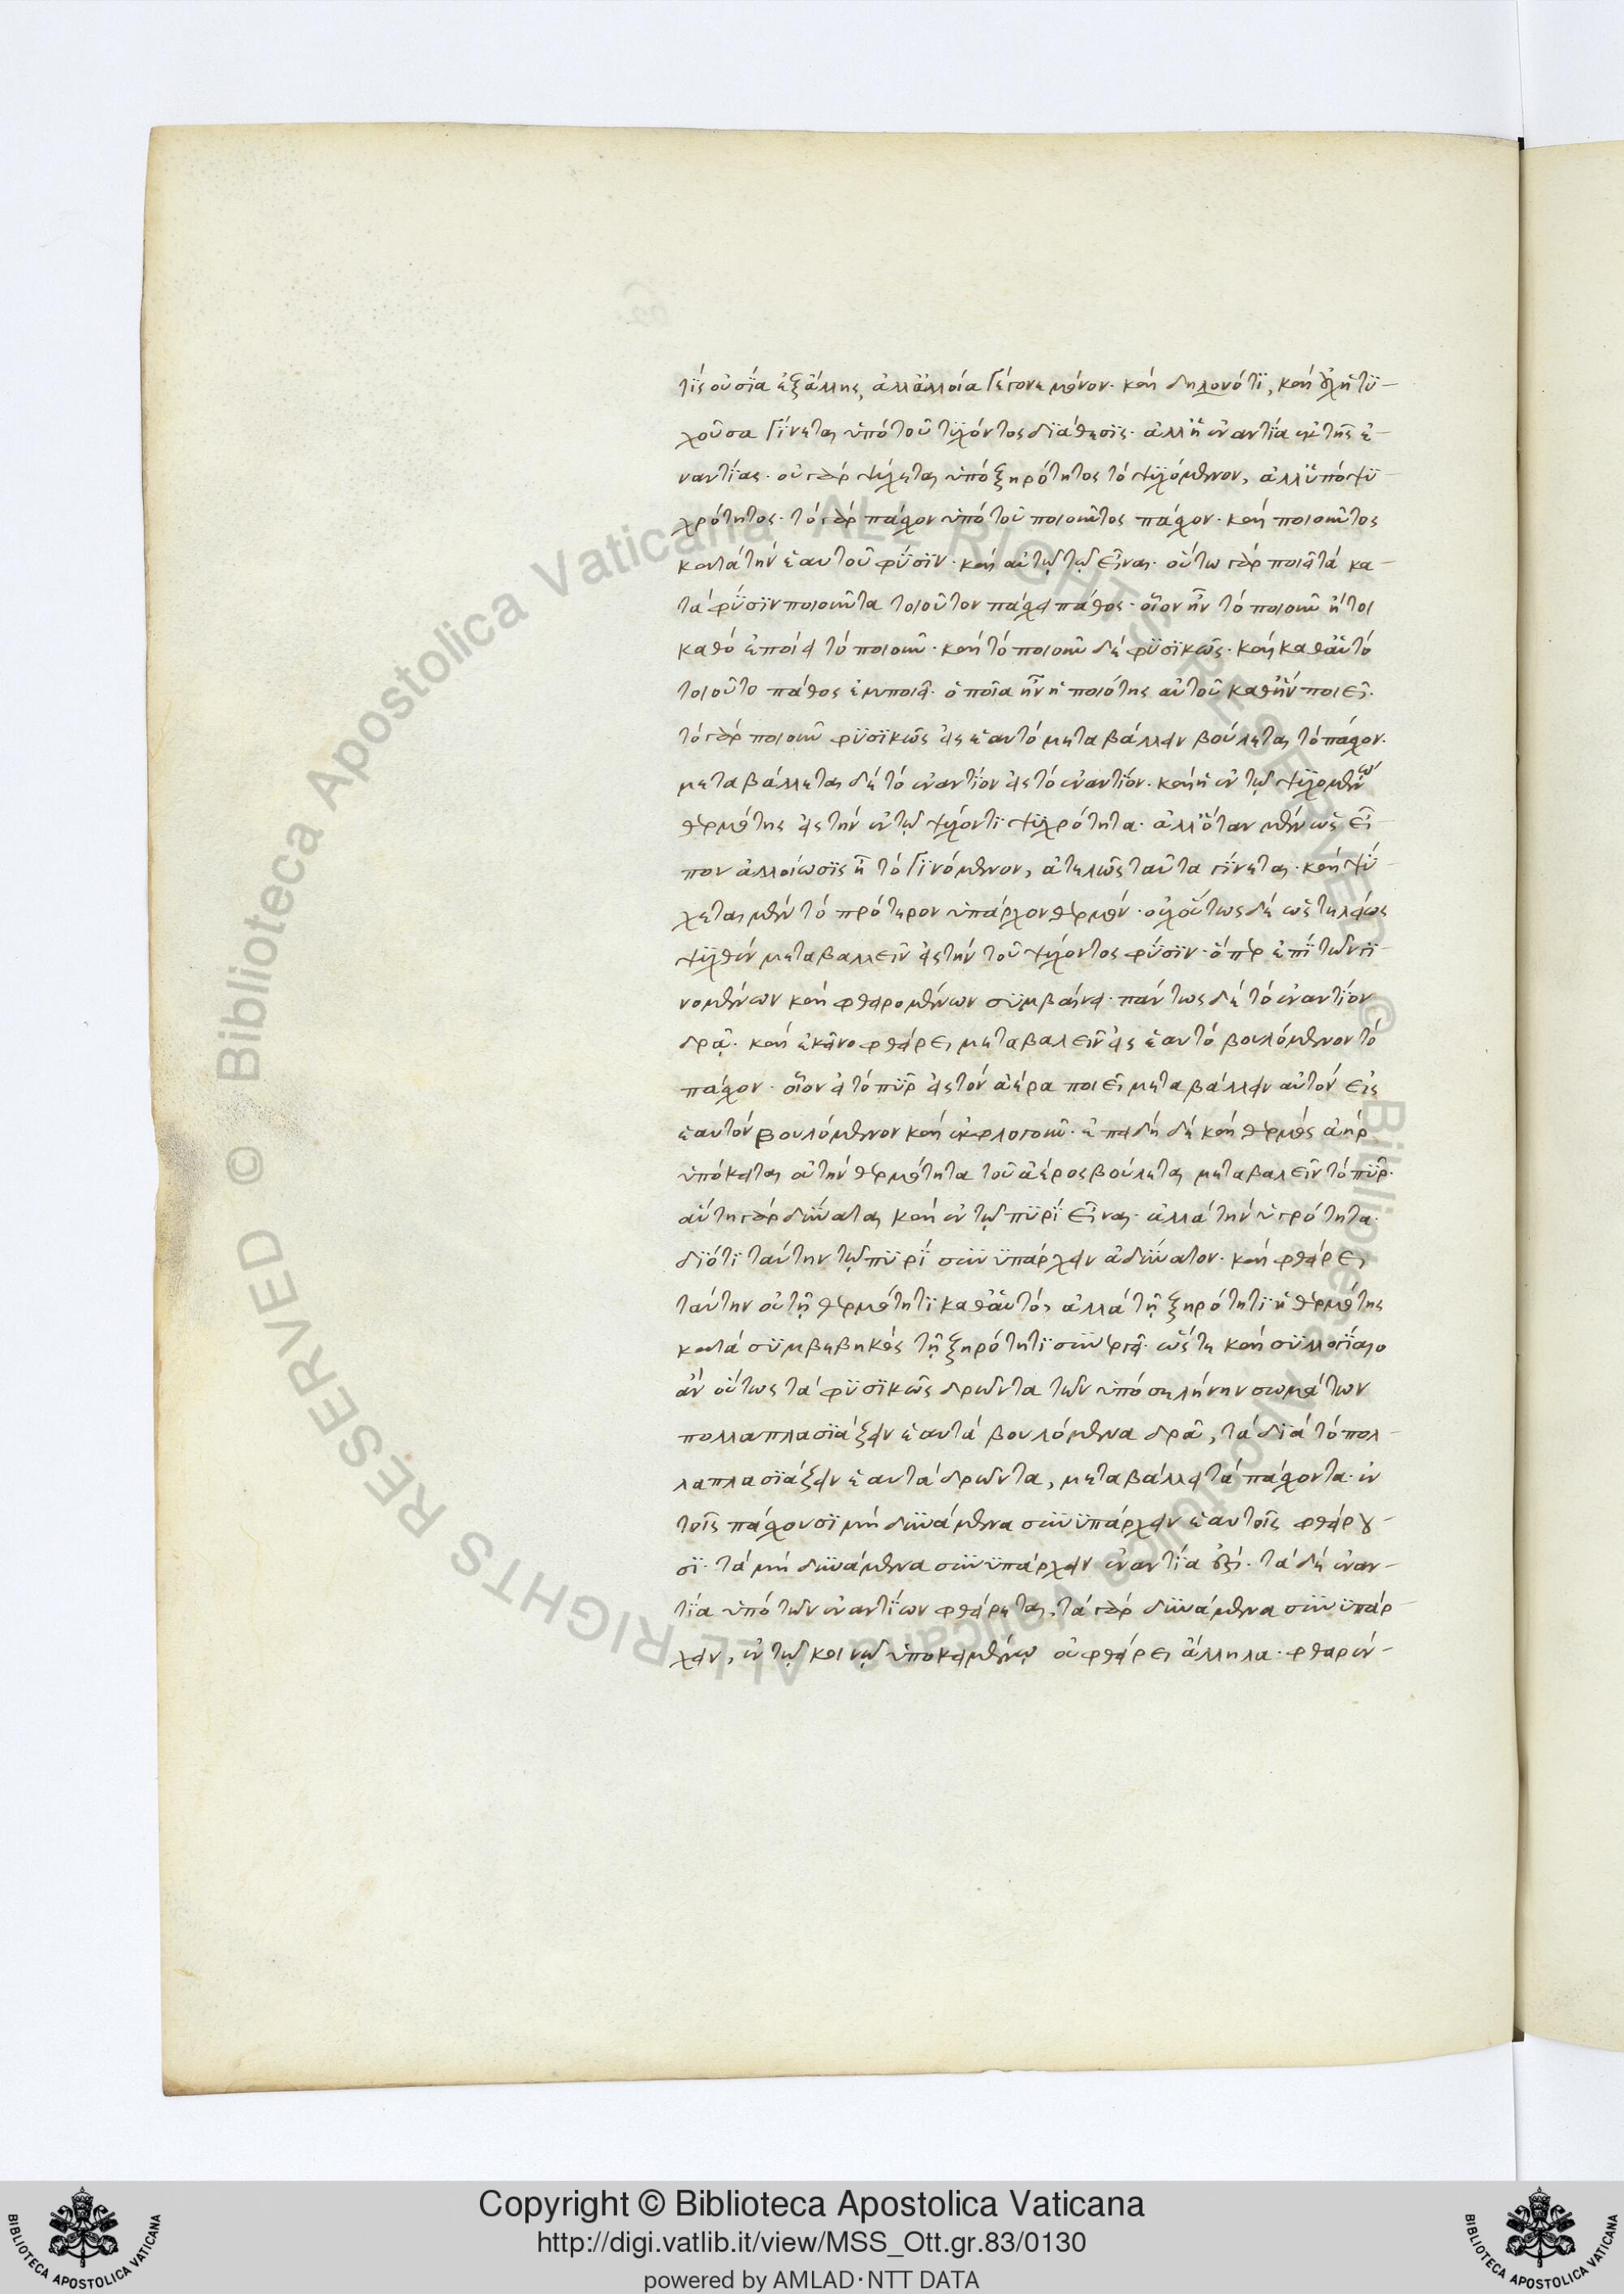 τίς οὐσία ἐξ ἄλλης, ἀλλ' ἀλλοία γέγονε μόνον. καὶ δηλονότι, καὶ οὐχ ἡ τυ-
χοῦσα γίνεται ὑπὸ τοῦ τυχόντος διάθεσις. ἀλλ' ἡ ἐναντία ἐκ τῆς ἐ-
ναντίας. οὐ γὰρ ψύχεται ὑπὸ ξηρότητος τὸ ψυχόμενον, ἀλλ' ὑπὸ ψυ-
χρότητος. τὸ γὰρ πάσχον ὑπὸ τοῦ ποιοῦντος πάσχον. καὶ ποιοῦντος
κατὰ τὴν ἑαυτοῦ φύσιν. καὶ αὐτῷ τῷ εἶναι. οὕτω γὰρ ποιεῖ τὰ κα-
τὰ φύσιν ποιοῦντα τοιοῦτον πάσχει πάθος. οἷον ἦν τὸ ποιοῦν ἤτοι
καθὸ ἐποίει τὸ ποιοῦν. καὶ τὸ ποιοῦν δὲ φυσικῶς. καὶ καθ' αὑτὸ
τοιοῦτο πάθος ἐμποιεῖ. ὁποῖα ἦν ἡ ποιότης αὐτοῦ καθ' ἣν ποιεῖ.
τὸ γὰρ ποιοῦν φυσικῶς εἰς ἑαυτὸ μεταβάλλειν βούλεται τὸ πάσχον.
μεταβάλλεται δὲ τὸ ἐναντίον εἰς τὸ ἐναντίον. καὶ ἡ ἐν τῷ ψυχομένῳ
θερμότης εἰς τὴν ἐν τῷ ψύχοντι ψυχρότητα. ἀλλ' ὅταν μὲν ὡς εἶ-
πον ἀλλοίωσις ᾖ τὸ γινόμενον, ἀτελῶς ταῦτα γίνεται. καὶ ψύ-
χεται μὲν τὸ πρότερον ὑπάρχον θερμόν. οὐχ οὕτως δὲ ὥστε τελείως
ψυχθὲν μεταβαλλεῖν εἰς τὴν τοῦ ψύχοντος φύσιν. ὅπερ ἐπὶ τῶν γι-
νομένων καὶ φθειρομένων συμβαίνει. πάντως δὲ τὸ ἐναντίον
δρᾷ. καὶ ἐκεῖνο φθείρει μεταβαλεῖν εἰς ἑαυτὸ βουλόμενον τὸ
πάσχον. οἷον εἰ τὸ πῦρ εἰς τὸν ἀέρα ποιεῖ μεταβάλλειν αὐτὸν εἰς
ἑαυτὸν βουλόμενον καὶ ἐκφλογοῦν. ἐπειδὴ δὲ καὶ θερμὸς ἀὴρ
ὑπόκειται οὐ τὴν θερμότητα τοῦ ἀέρος βούλεται μεταβαλεῖν τὸ πῦρ.
αὕτη γὰρ δύναται καὶ ἐν τῷ πυρὶ εἶναι. ἀλλὰ τὴν ὑγρότητα.
διότι ταύτην τῷ πυρὶ συνυπάρχειν ἀδύνατον. καὶ φθείρει
ταύτην οὐ τῇ θερμότητι καθ' αὑτό, ἀλλὰ τῇ ξηρότητι ἡ θερμότης
κατὰ συμβεβηκὸς τῇ ξηρότητι συνεργεῖ. ὥστε καὶ συλλογίσαιο
ἂν οὕτως τὰ φυσικῶς δρῶντα τῶν ὑπὸ σελήνην σωμάτων
πολλαπλασιάζειν ἑαυτὰ βουλόμενα δρᾷ, τὰ διὰ τὸ πολ-
λαπλασιάζειν ἑαυτὰ δρῶντα, μεταβάλλει τὰ πάσχοντα. ἐν
τοῖς πάσχουσι μὴ δυνάμενα συνυπάρχειν ἑαυτοῖς φθείρου-
σι. τὰ μὴ δυνάμενα συνυπάρχειν ἐναντία ἐστί. τὰ δὲ ἐναν-
τία ὑπὸ τῶν ἐναντίων φθείρεται, τὰ γὰρ δυνάμενα συνυπάρ-
χειν, ἐν τῷ κοινῷ ὑποκειμένῳ οὐ φθείρει ἄλληλα. φθαρέν-
Copyright © Biblioteca Apostolica Vaticana
http://digi.vatlib.it/view/MSS_Ott.gr.83/0130
powered by AMLAD·NTT DATA
BIBLIOTECA APOSTOLICA VATICANA
BIBLIOTECA APOSTOLICA VATICANA
© Biblioteca Apostolica Vaticana ALL RIGHTS RESERVED
© Biblioteca Apostolica Vaticana ALL RIGHTS RESERVED